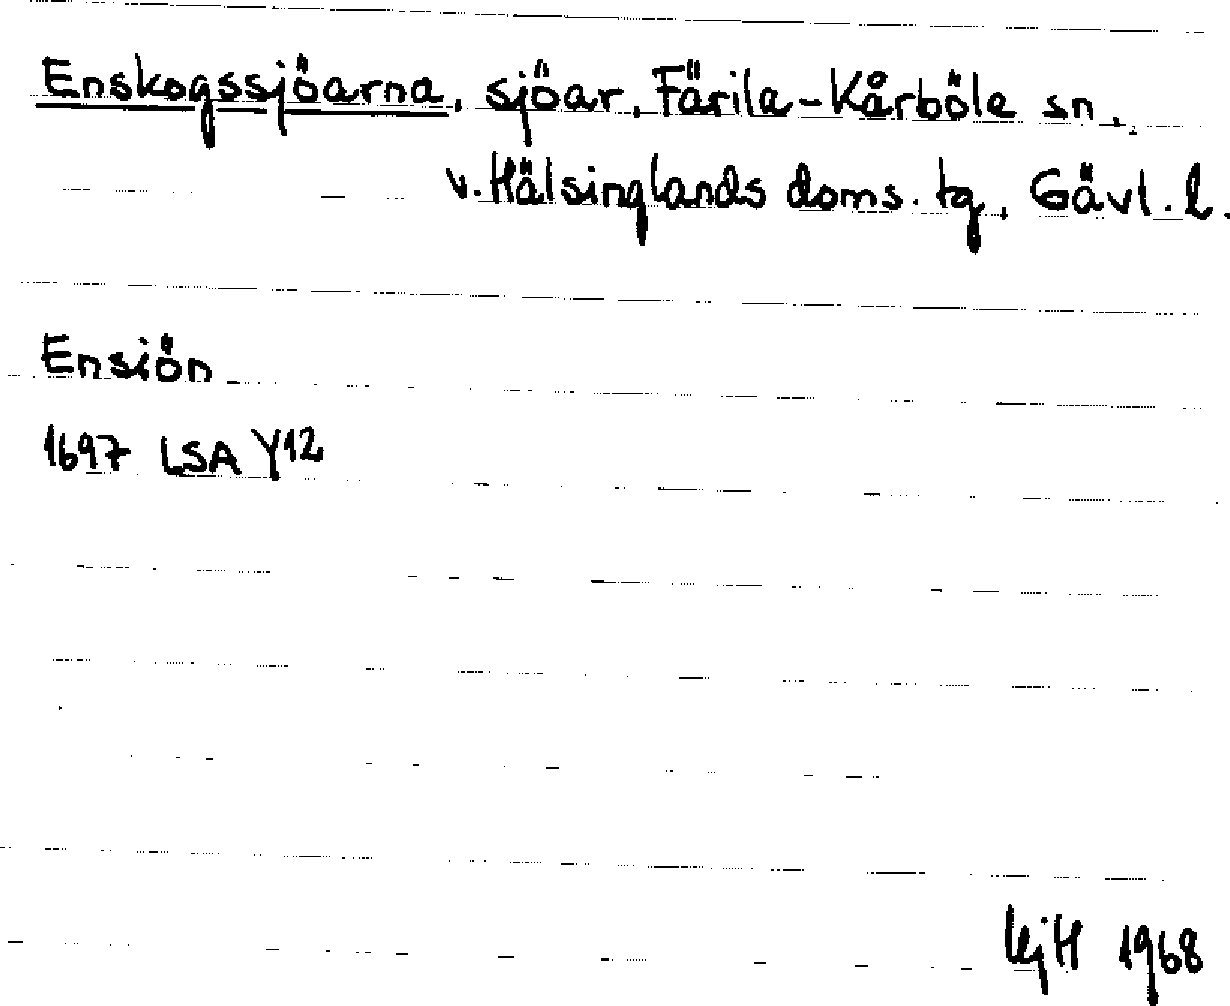 Enskogssjöarna, sjöar, Färila-Kårböle sn.,
v. Hälsinglands doms. tg, Gävl. l.
Ensiön
1697 LSA Y12
KjH 1968